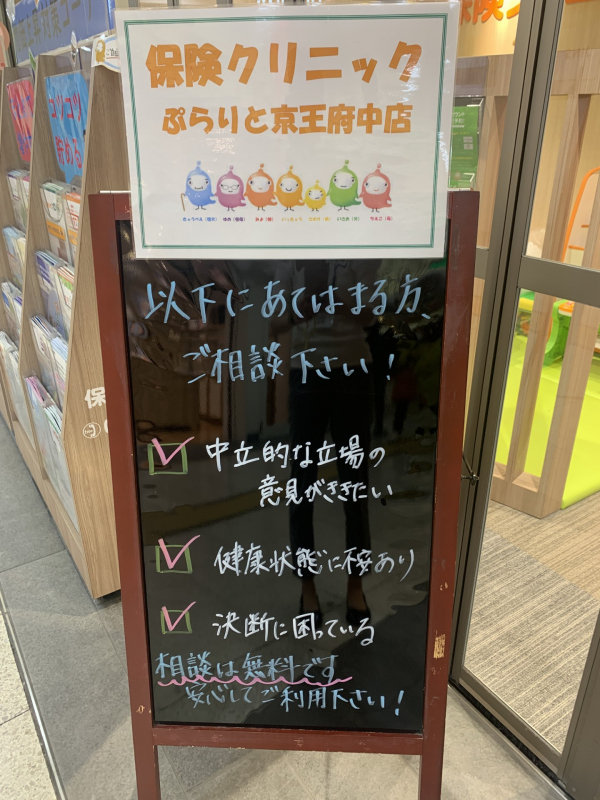 保険クリニック
ぷらりと京王府中店
以下にあてはまる方、
ご相談下さい！
中立的な立場の
意見がききたい
健康状態に不安あり
決断に困っている
相談は無料です
安心してご利用下さい！
コツコツ
貯める
保